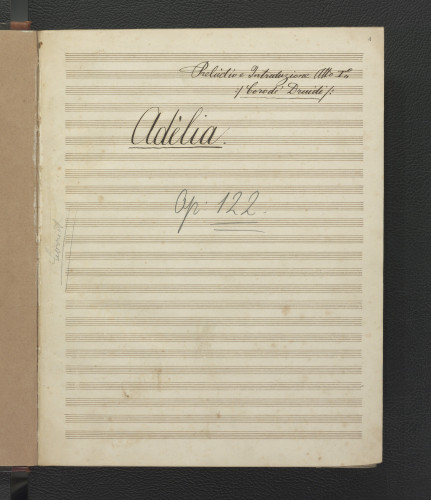 Preludio e Introduzione Atto Iº
:/ Coro di Druidi /:
Adelia.
Op. 122.